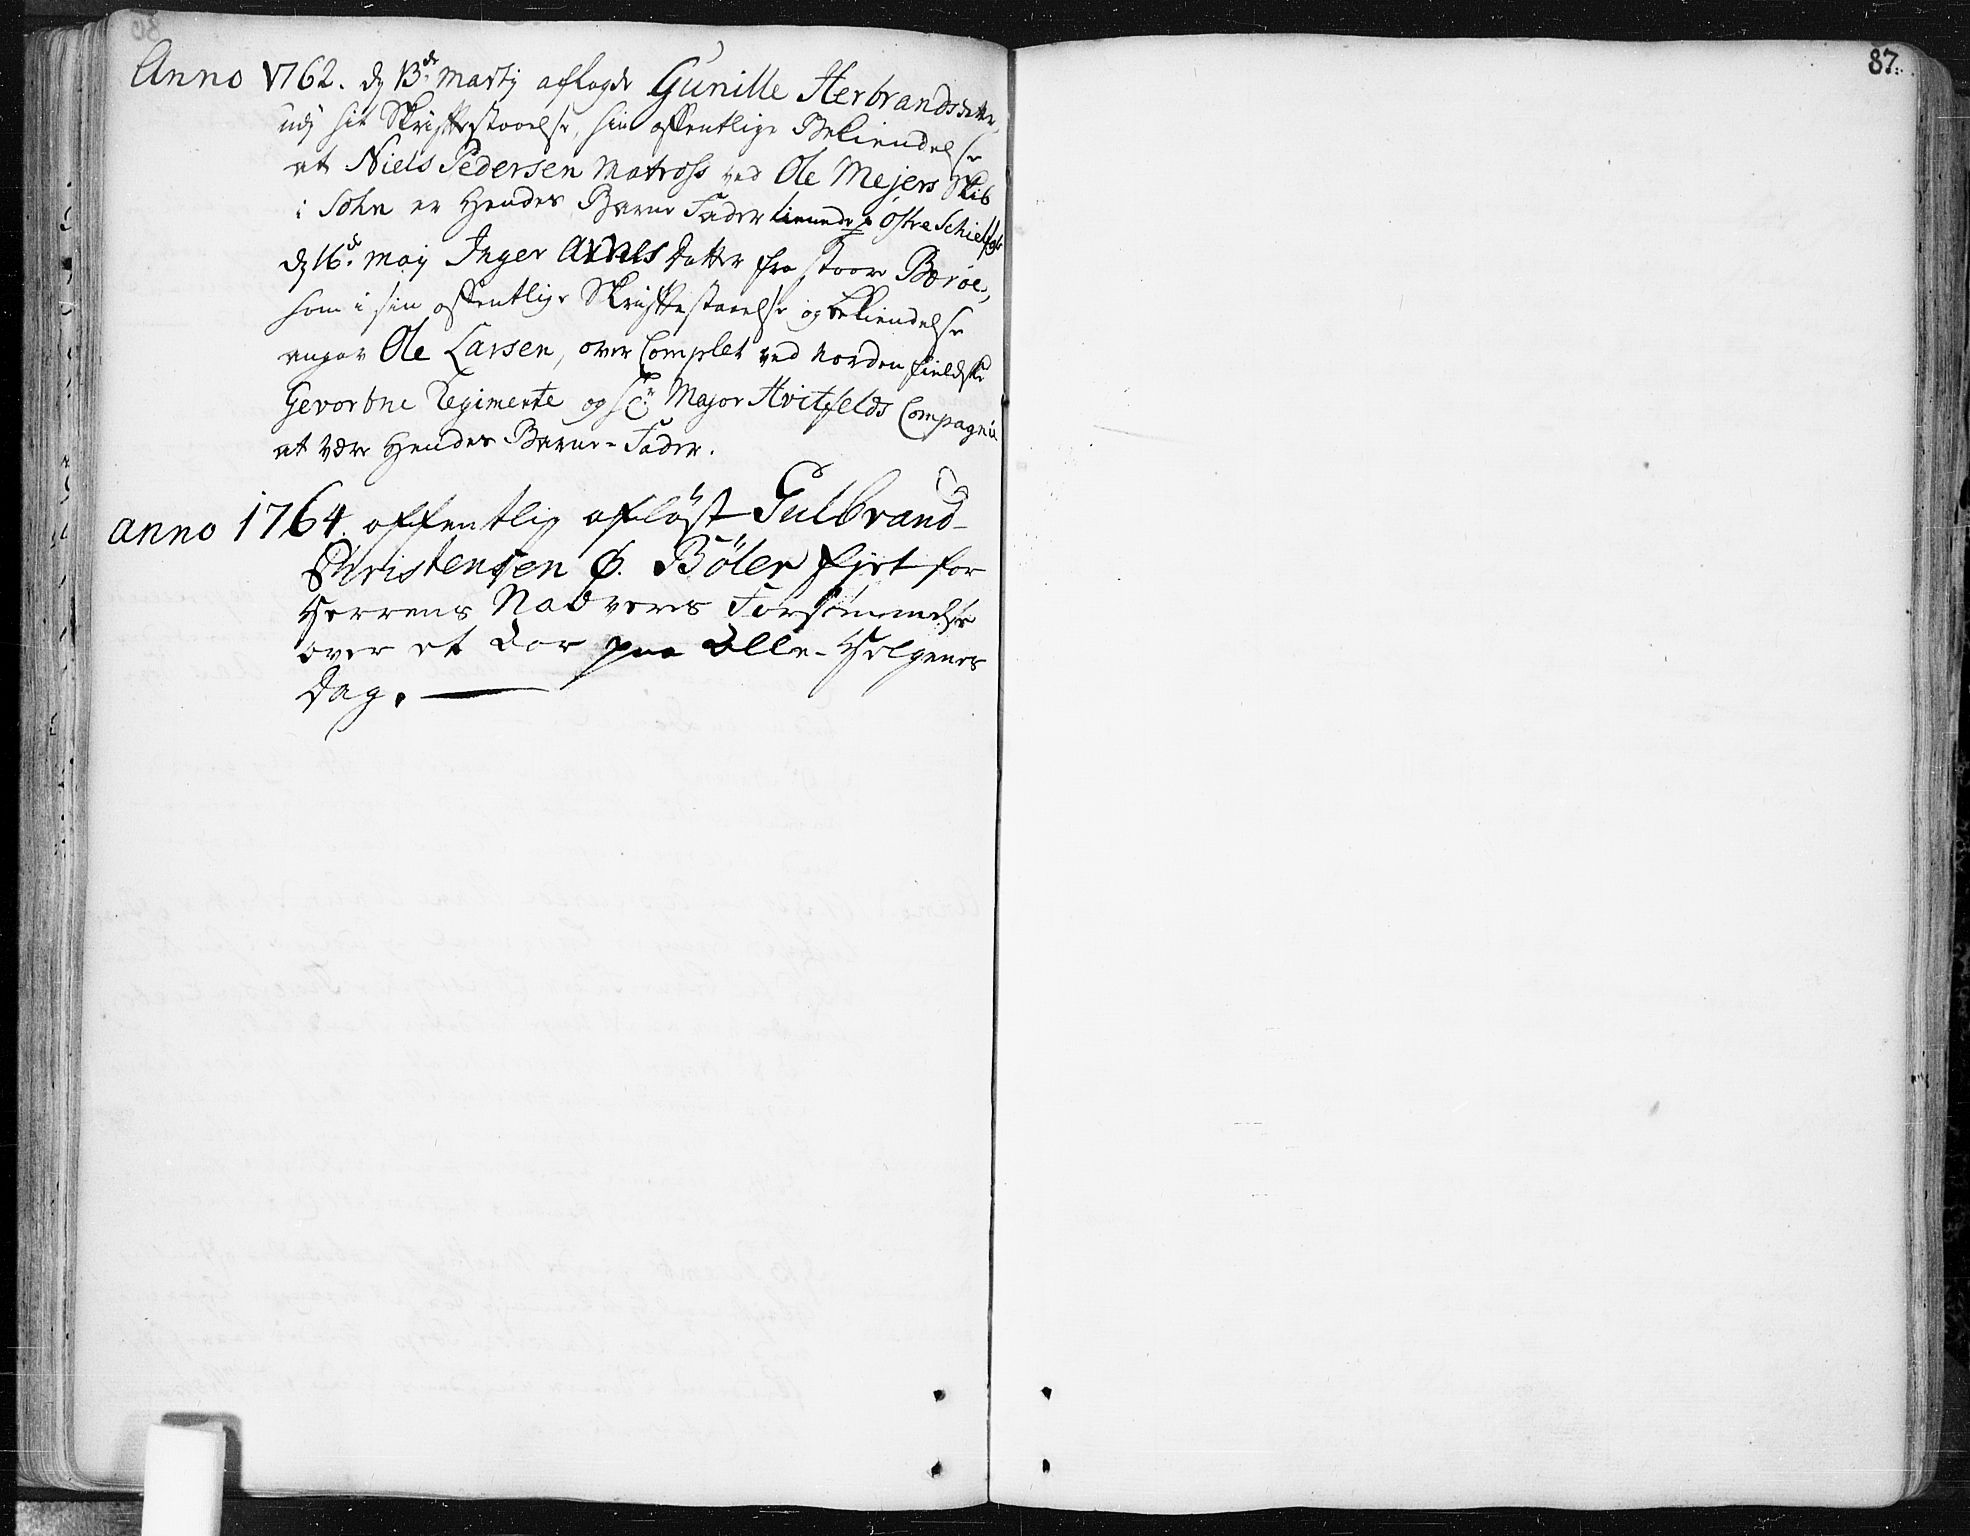 87.
Anno 1762. d 13de Martij aflagde Gunille Herbrandsdatter,
udj sit Skriftestaaelse, sin offentlige Bekiendelse
at Niels Pedersen Matross ved Ole Mejers Skib
i Sohn er Hendes Barne Fader tienende Østre Schie
d 16de Maij Inger Arnes Datter fra Store Børøe,
som i sin offentlige Skriftestaaelse og bekiendelse
angav Ole Larsen, over Complet ved Nordenfieldske
Gevorbne Regimente og Major Hvitfelds Compagnie
at være Hendes Barne-Fader.
anno 1764. offentlig afløst Gulbrand
Christensen Ø. Bøler for
Herrens Nadveres Forsømmelse
over et Aar paa Alle-Helgenes
Dag.